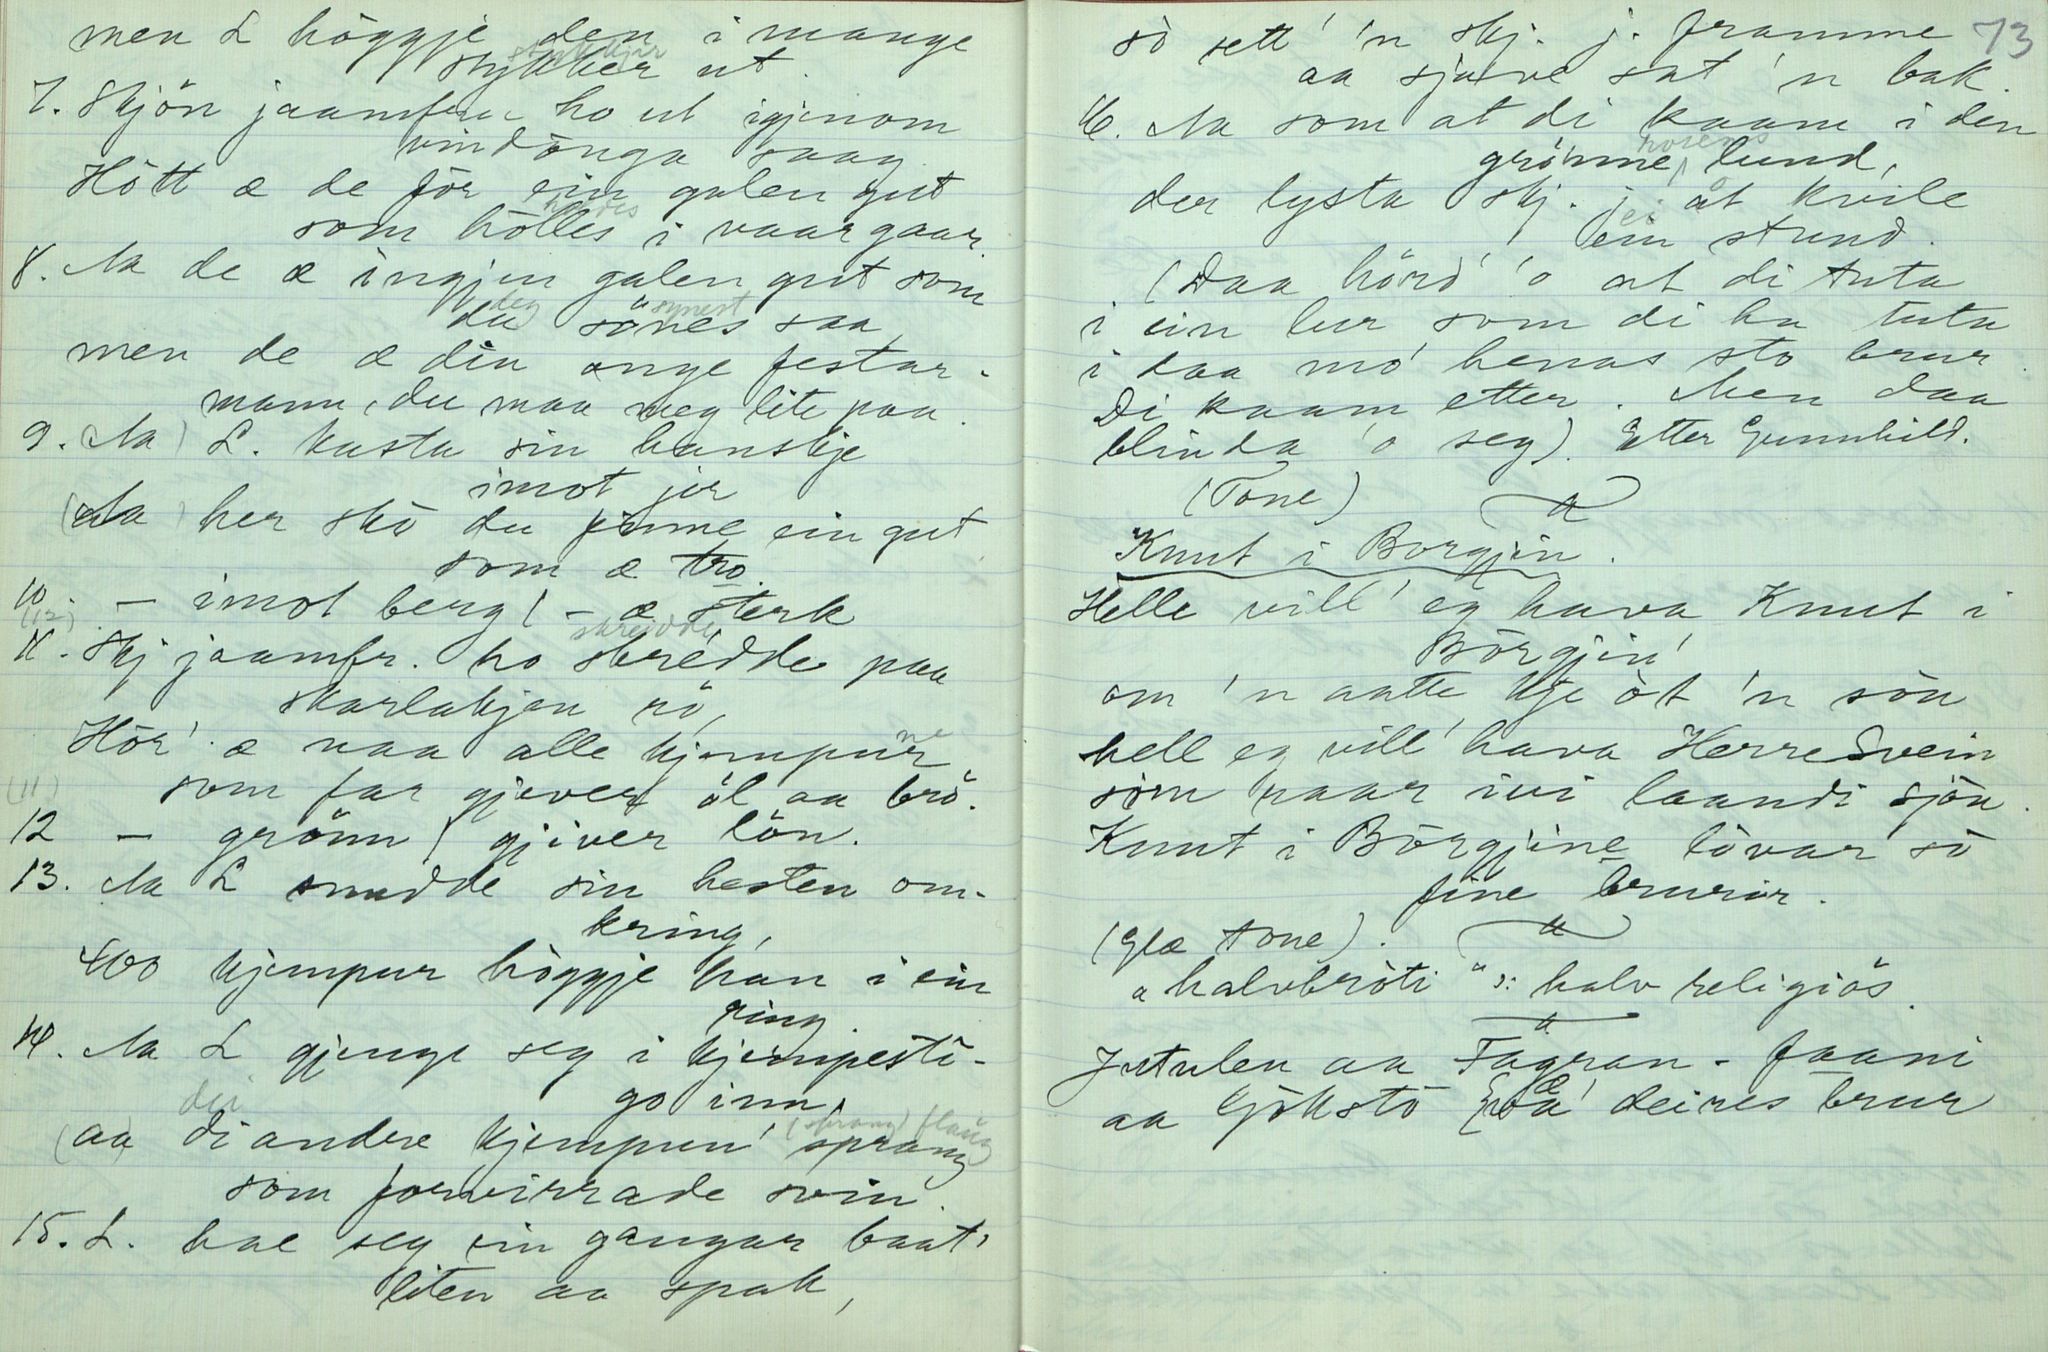 men L höggje den i mange
stykkjir
stykker ut.
7. Skjön jaamfru ho ut igjenom
vindönga saag
Hött æ de för ein galen gut
som hölles i vaar gaar.
8. Aa de æ ingjen galen gut som
deg synest
du sönes saa
men de æ din onge festar-
mann, du maa meg lite paa.
9. (Aa) L. kasta sin hanskje
imot jer
(Aa) her skö du finne ein gut
som æ tro.
10. — imot berg / — æ sterk
(12) skreidde
11. Skj jaamfr. ho skredde paa
skarlakjen rö,
Hör' æ naa alle kjempur ne
(11) som far gjever öl aa brö.
12 — grönn / gjiver lön.
13. Aa L snudde sin hesten om-
kring,
400 kjempur höggje han i ein
ring.
14. Aa L gjenge seg i kjempesti-
go inn,
dei
(aa) di andre kjempun' sprang (sprang) flaug
som forvirrade svin.
15. L. hae seg ein gangar baat'
liten aa spak,
73
sö sett' 'n skj. j. framme
aa sjølve sat 'n bak.
16. Aa som at di kaam i den
rosens
grönne lund,
der lysta skj. j. åt kvile
ei
ein stund.
(Daa hörd' 'o at di tuta
i ein lur som di ha tuta
i daa mo' henas sto brur.
Di kaam etter. Men daa
blinda 'o seg). Etter Gunnhild.
(Tone)
Knut i Borgjin.
Helle vill' eg hava Knut i
Börgjin'
om 'n aatte kje öt 'n sön
hell eg vill' hava Herre Svein
som raar ivi laandi sjön.
Knut i Börgjine lövar sö
fine brurir.
(Glæ tone).
"halvbröti" ɔ: halv religiös.
Jutulen aa Fagran - faani
aa Gjökstö deires brur